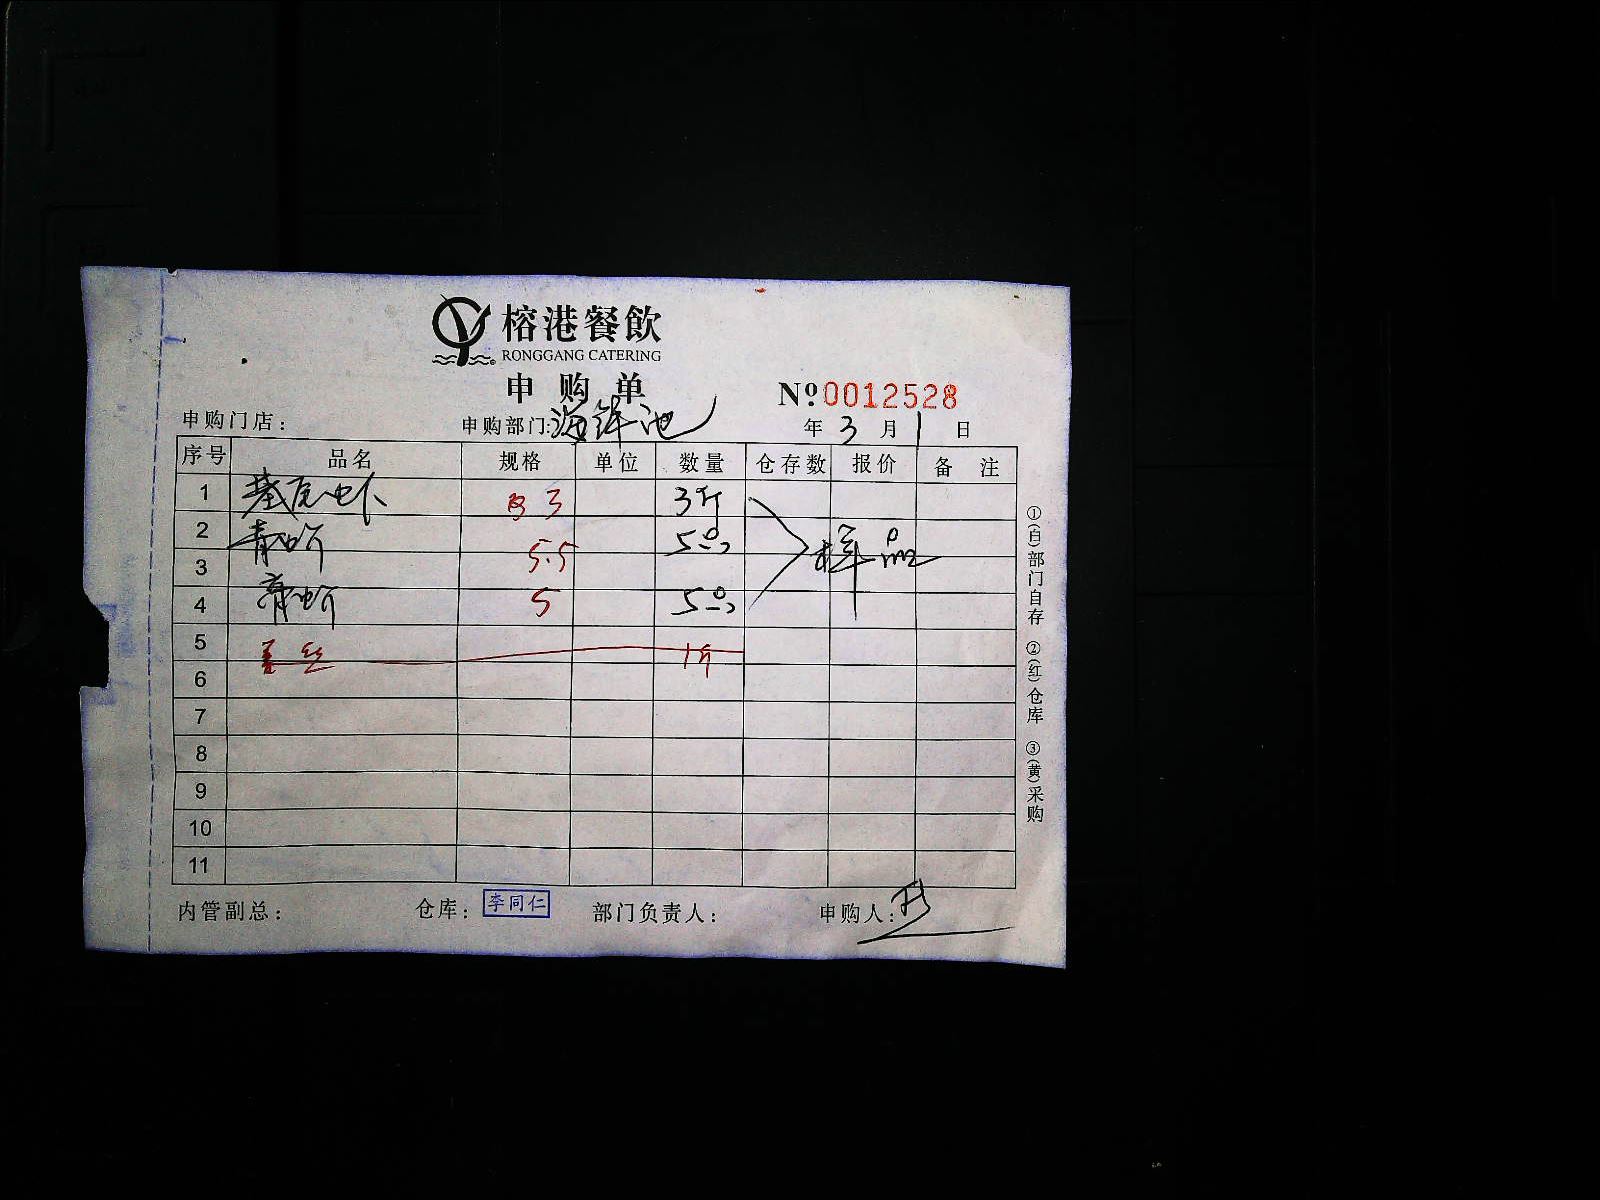 榕港餐飲
RONGGANG CATERING
申购单
№0012528
申购门店： 申购部门:海鲜池 年 3 月 1 日
序号 品名 规格 单位 数量 仓存数 报价 备 注
1 基尾虾 3斤
2 青 5只
样品
3 5.5
4 5 5只
5 丝 1斤
6
7
8
9
10
11
内管副总： 仓库：李同仁 部门负责人： 申购人:
①(白)部门自存 ②(红)仓库 ③(黄)采购